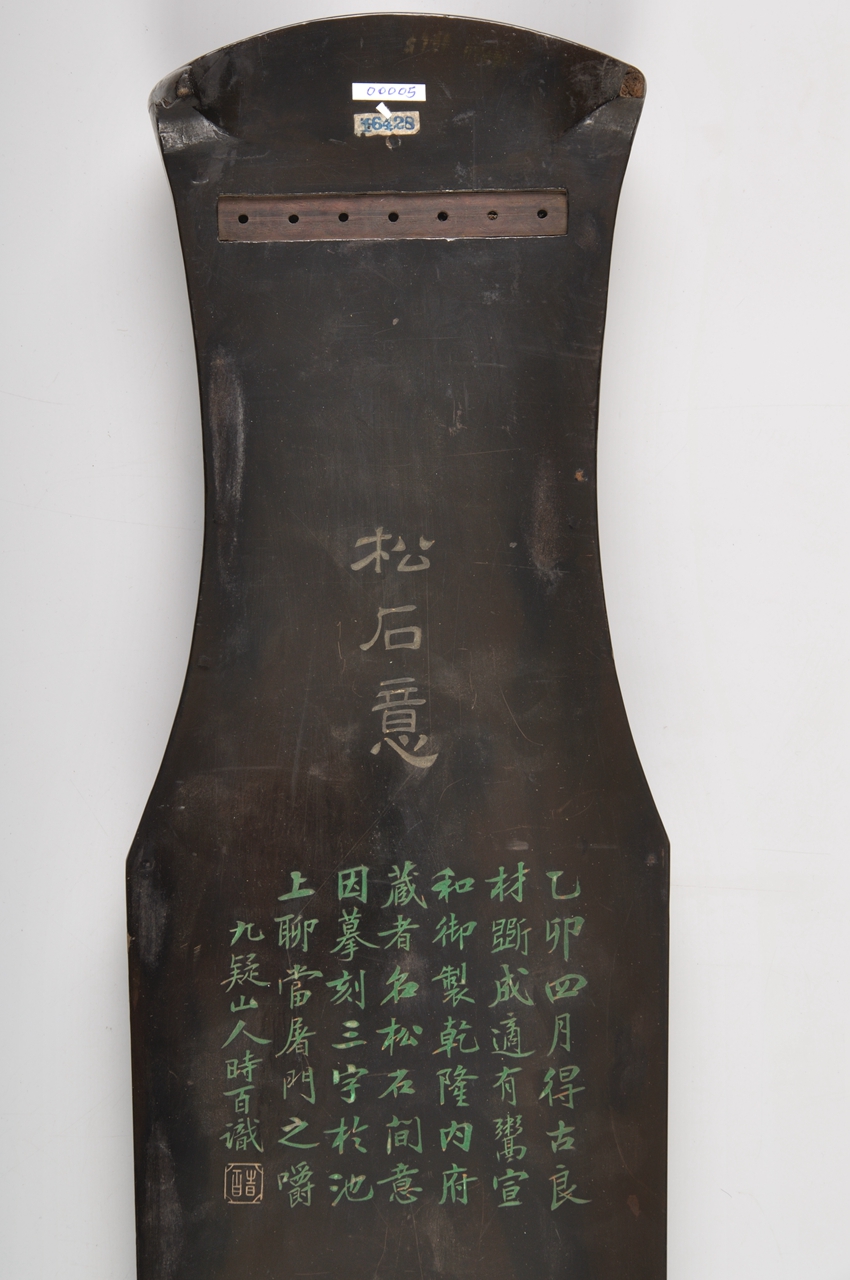 00005
46428
松石意
乙卯四月得古良
材斵成適有鬻宣
和御製乾隆内府
藏者名松石间意
因摹刻三字於池
上聊當屠門之嚼
九疑山人時百識